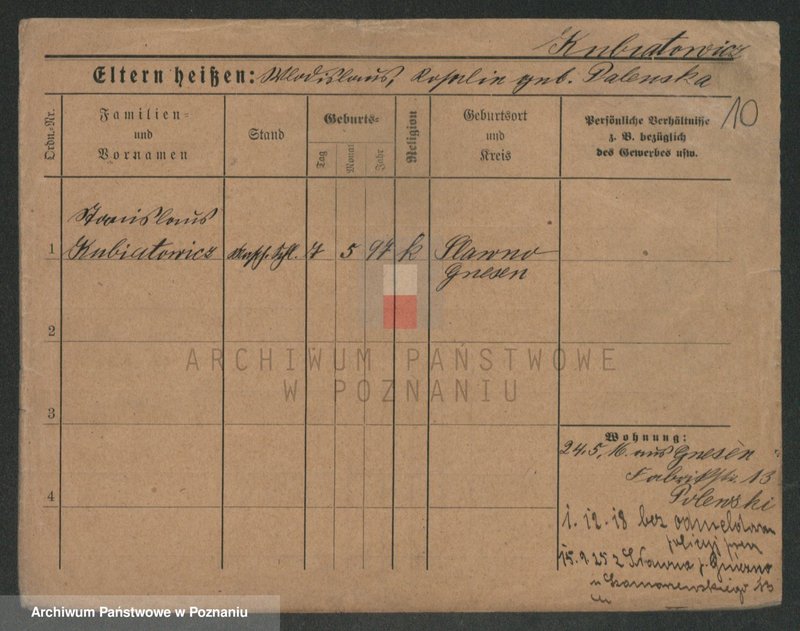 Kubiatowicz
Eltern heißen: Wladislaus, Rosalie geb. Palenska
10
Ordn.-Nr.
Familien-
und
Vornamen
Stand
Geburts-
Tag
Monat
Jahr
Religion
Geburtsort
und
Kreis
Persönliche Verhältnisse
z. B. bezüglich
des Gewerbes usw.
Stanislaus
1 Kubiatowicz 7 5 97 k Slawno
Gnesen
2
ARCHIWUM PAŃSTWOWE
W POZNANIU
3
Wohnung:
24.5.16. aus Gnesen
Fabrikstr. 13
Polenski
4
1.12.18 bez
policji
15.9.25 z Sławna p. Gniezno
13
Archiwum Państwowe w Poznaniu